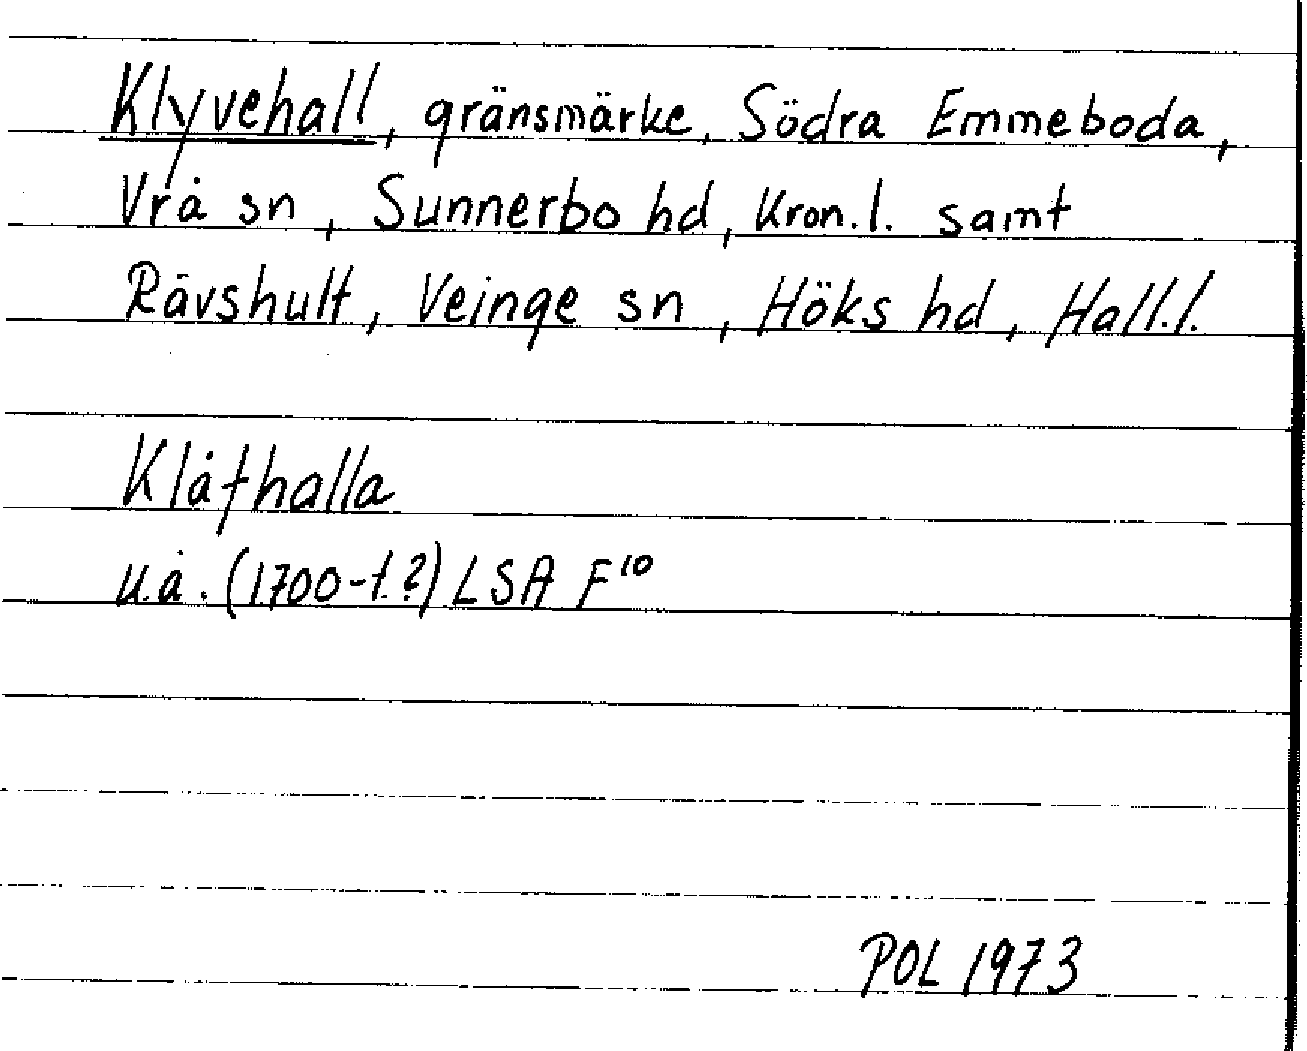 Klyvehall, gränsmärke, Södra Emmeboda,
Vrå sn, Sunnerbo hd, Kron.l. samt
Rävshult, Veinge sn, Höks hd, Hall.l.
Klåfhalla
u.å. (1700-t.?) LSA F¹⁰
POL 1973